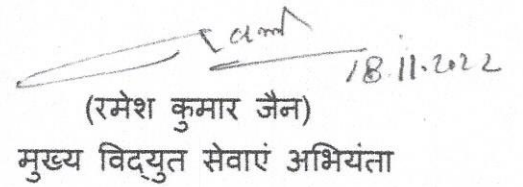 18.11.2022
(रमेश कुमार जैन)
मुख्य विद्युत सेवाएं अभियंता